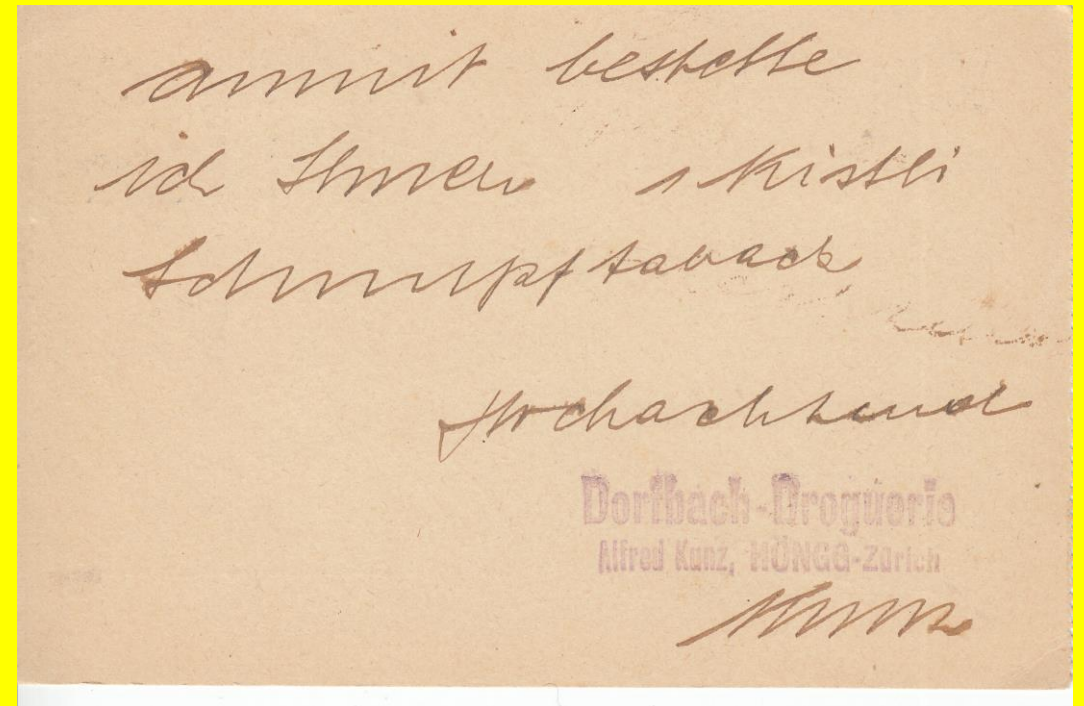 anmit bestelle
ich Ihnen 1 Kistli
Schnupftaback
Hochachtend
Dorfbach-Droguerie
Alfred Kunz, HÖNGG-Zürich
Kunz